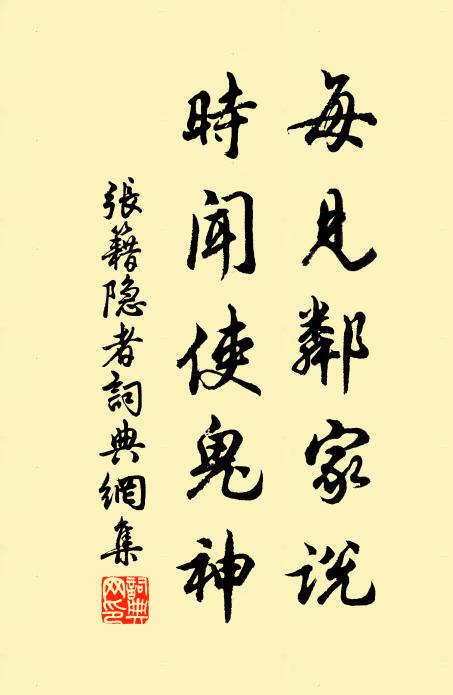 每見鄰家説
時聞使鬼神
張籍隐者詞典網集
詞典
网印